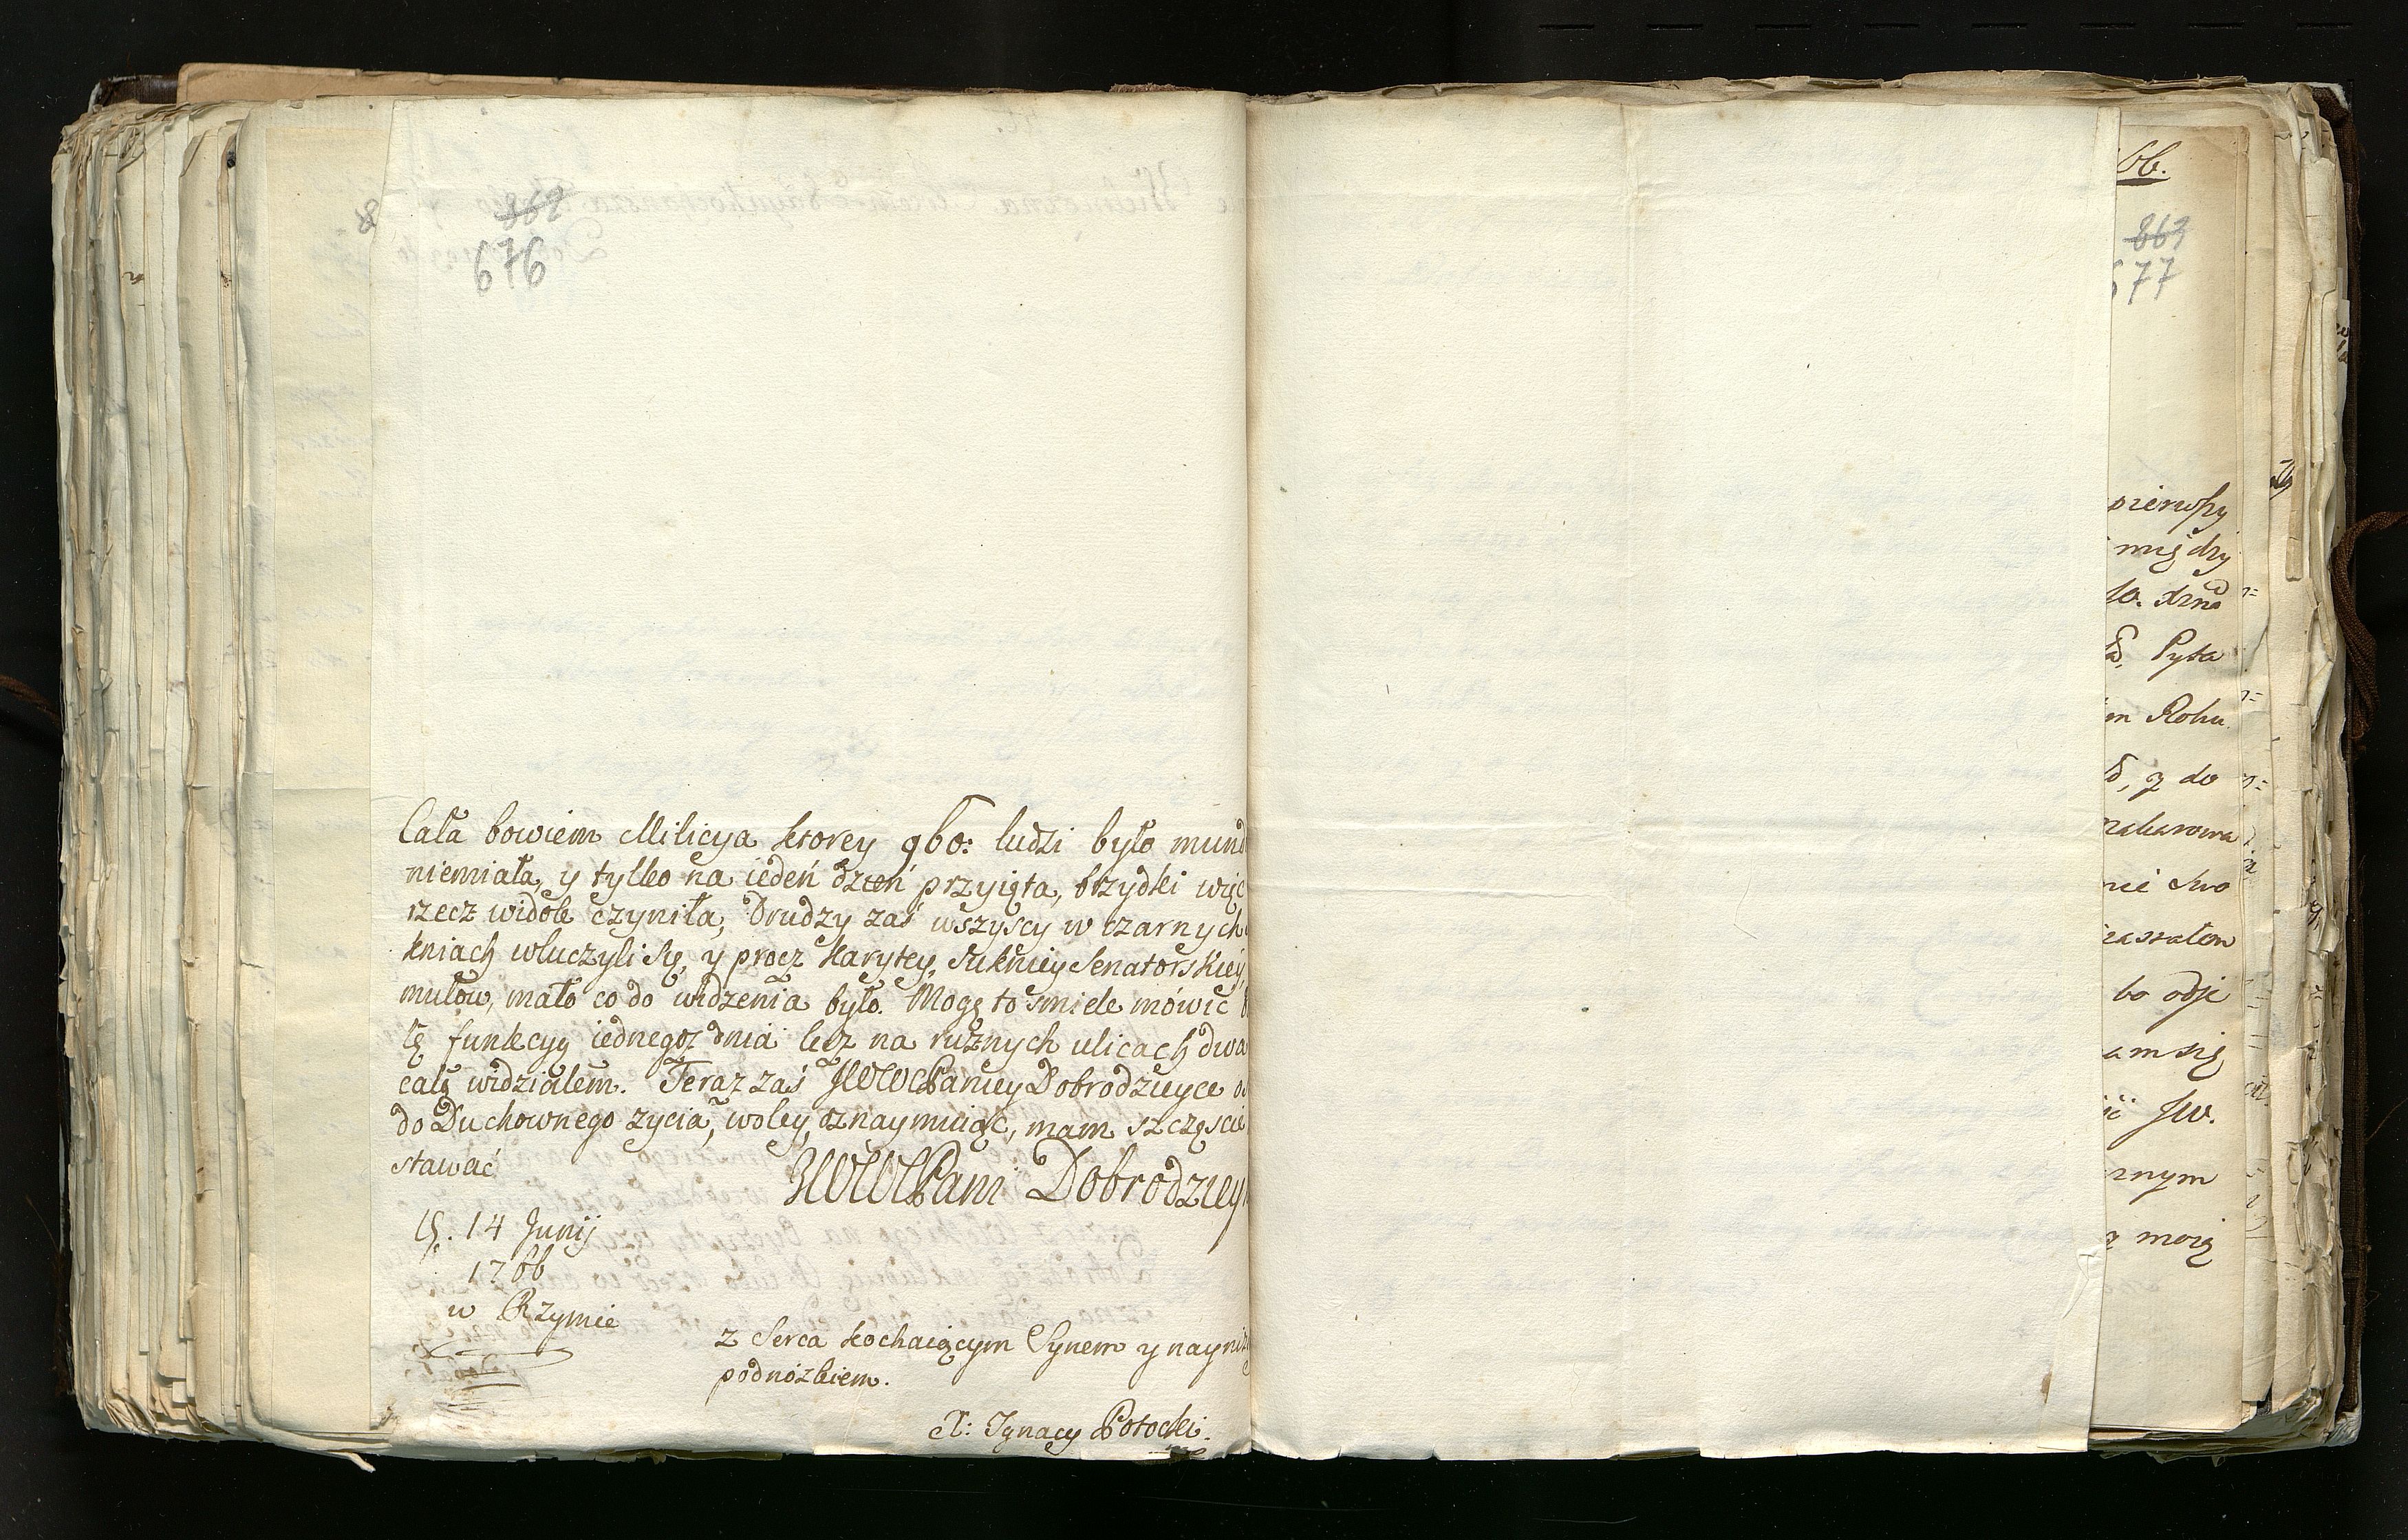 862
676
Cała bowiem Milicya ktorey 960: ludzi było mund
niemiała, y tylko na ieden dzień przyięta, brzydki więc
rzecz widok czyniła, Drudzy zaś wszyscy w czarnych
kniach włuczyli się, y procz Karytey, Sukniey Senatorskiey,
mułow, mało co do widzenia było. Mogę to smiele mówić
tę funkcyą iednegoz dnia lecz na rużnych ulicach dwa
całą widziałem. Teraz zaś JWWPaniey Dobrodzieyce
do Duchownego zycia, woley oznaymuiąc, mam szczęscie
stawać
JWWPani Dobrodziey
14 Junij
1766
w Rzymie
z Serca kochaiącym Synem y nayni
podnózkiem.
X: Ignacy Potocki.
66.
863
677
pierwszy
między
Pyta
Rohu
y do
bo odje
am się
JW.
rnym
moię